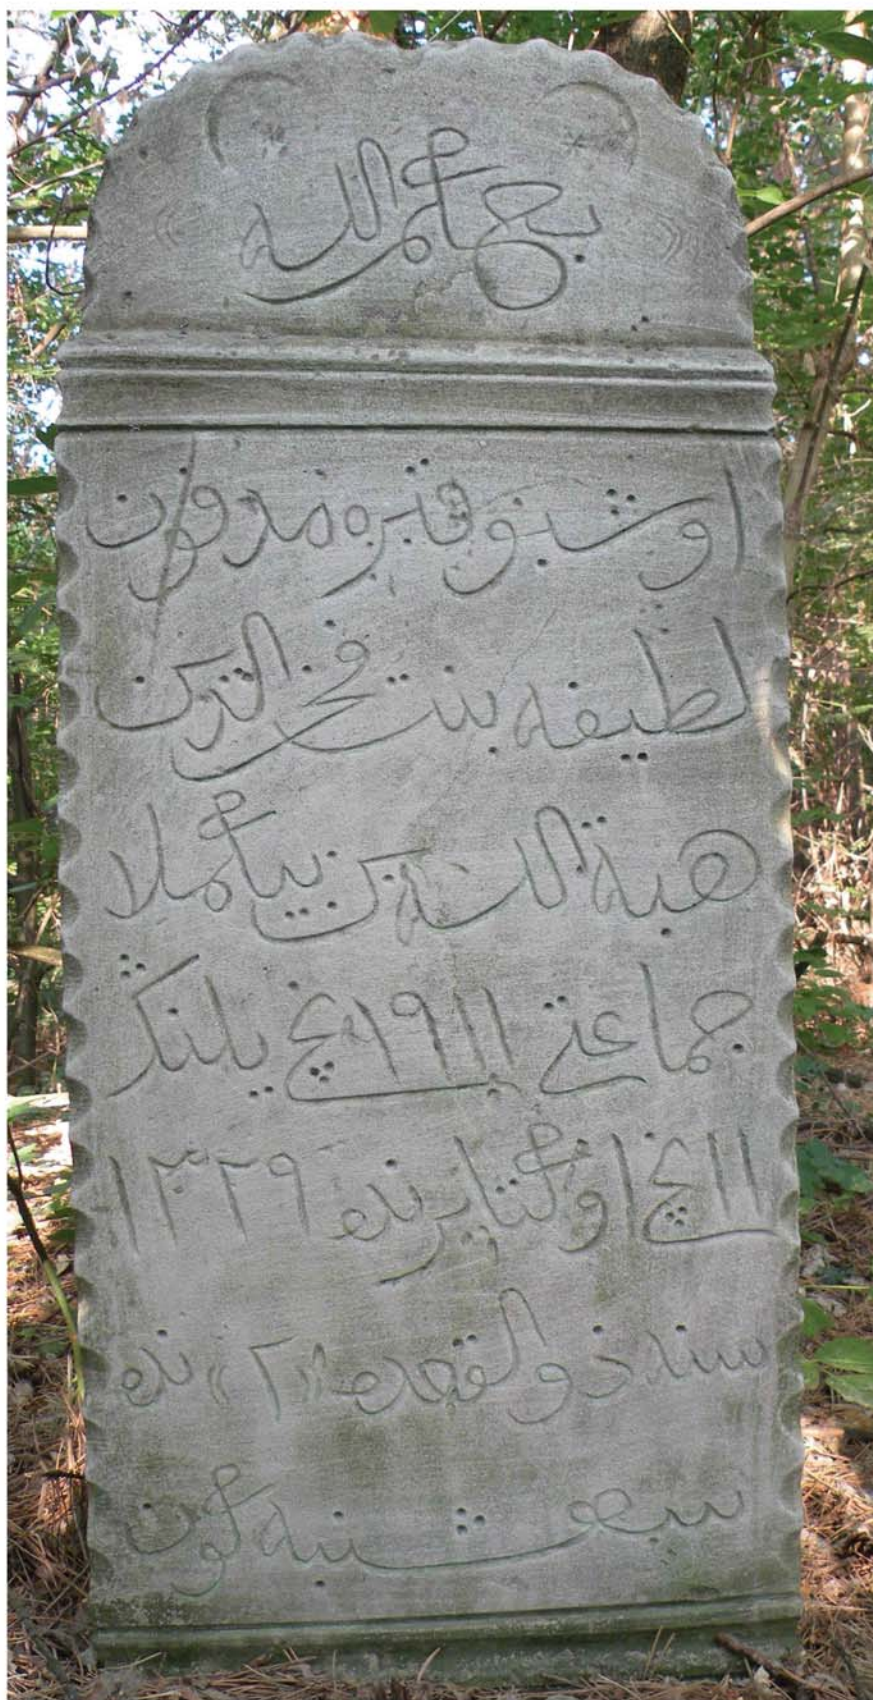 بحكم الله
اوشبو قبره مدفون
لطيفه بنت فخر الدين
هبة الله بن بيكملا
جماعتى ١٩١١نچى يلنڭ
١١نچى اوكتابرنده ١٣٢٩
سنه ذو القعده «٢» نده
سيهشنبه كون